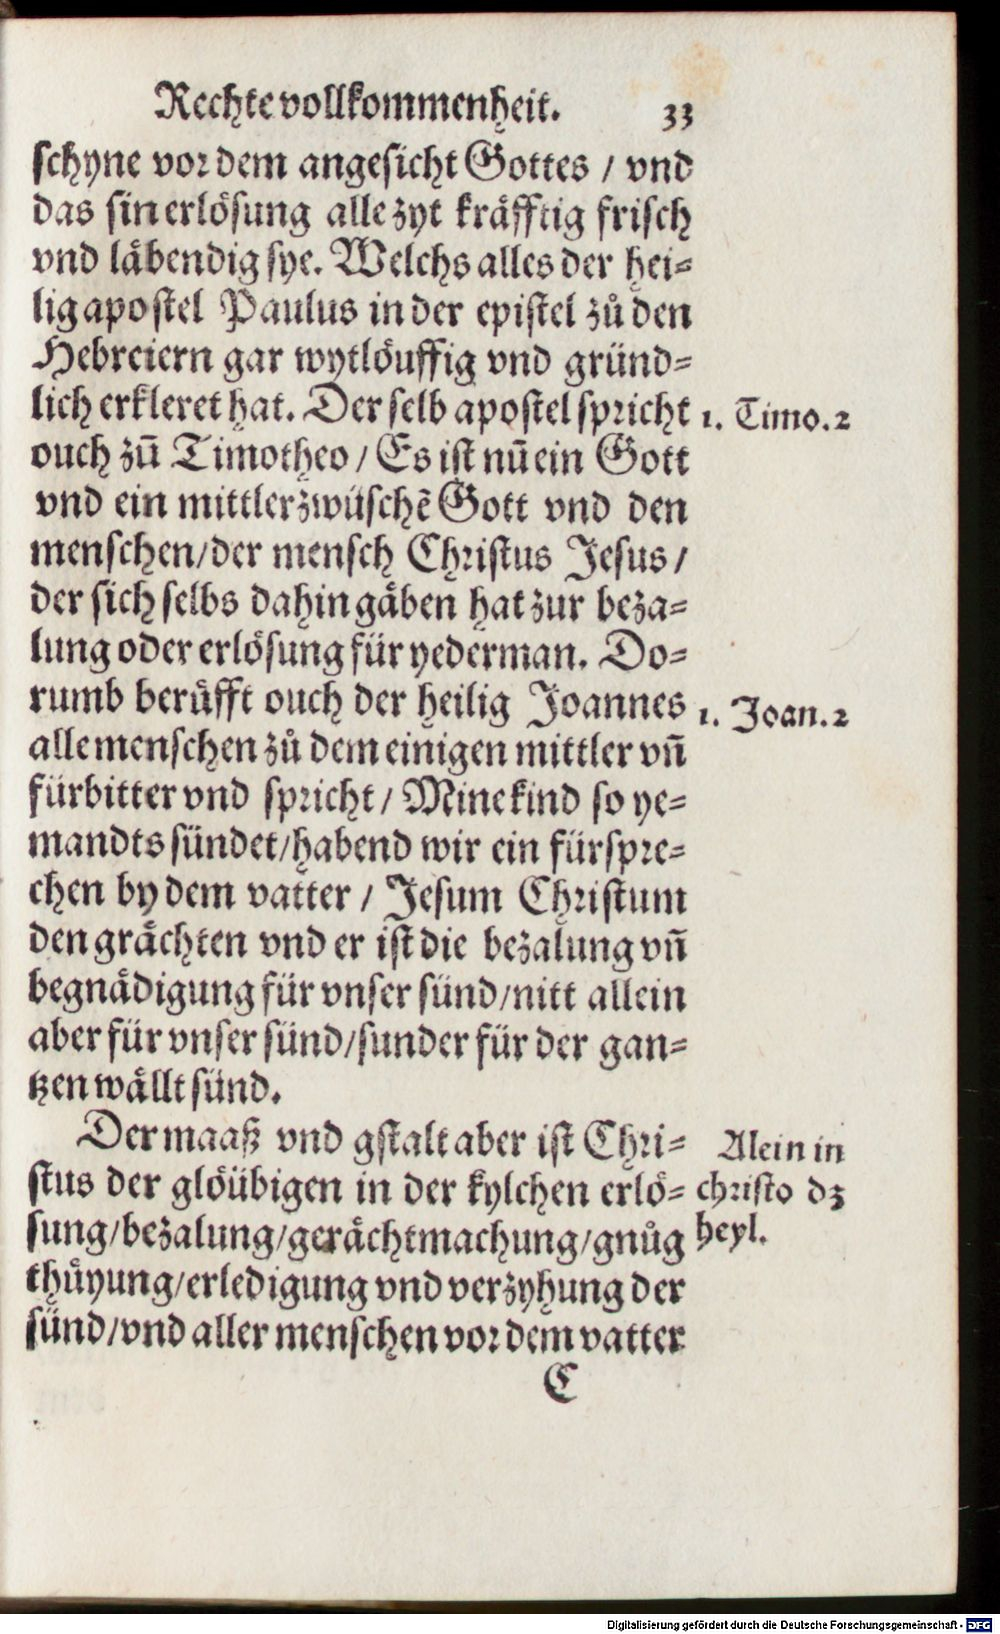 Rechte vollkommenheit. 33
schyne vor dem angesicht Gottes / vnd
das sin erlösung alle zyt kräfftig frisch
vnd läbendig sye. Welchs alles der hei-
lig apostel Paulus in der epistel zů den
Hebreiern gar wytlöuffig vnd gründ-
lich erkleret hat. Der selb apostel spricht
1. Timo. 2
ouch zů Timotheo / Es ist nũ ein Gott
vnd ein mittler zwüschẽ Gott vnd den
menschen / der mensch Christus Jesus /
der sich selbs dahin gäben hat zur beza-
lung oder erlösung für yederman. Do-
rumb berüfft ouch der heilig Joannes
1. Joan. 2
alle menschen zů dem einigen mittler vñ
fürbitter vnd spricht / Mine kind so ye-
mandts sündet / habend wir ein fürspre-
chen by dem vatter / Jesum Christum
den grächten vnd er ist die bezalung vñ
begnädigung für vnser sünd / nitt allein
aber für vnser sünd / sunder für der gan-
tzen wällt sünd.
Der maaß vnd gstalt aber ist Chri-
stus der glöübigen in der kylchen erlö-
sung / bezalung / gerächtmachung / gnůg
thüyung / erledigung vnd verzyhung der
sünd / vnd aller menschen vor dem vatter
Alein in
christo dz
heyl.
C
Digitalisierung gefördert durch die Deutsche Forschungsgemeinschaft - DFG